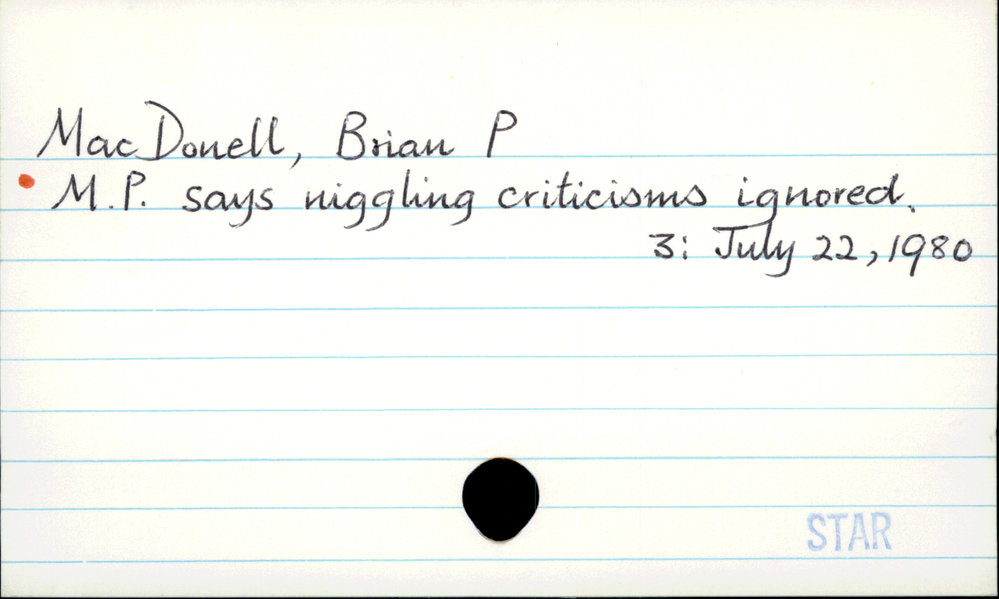 MacDonell, Brian P
M.P. says niggling criticisms ignored.
3: July 22, 1980
STAR